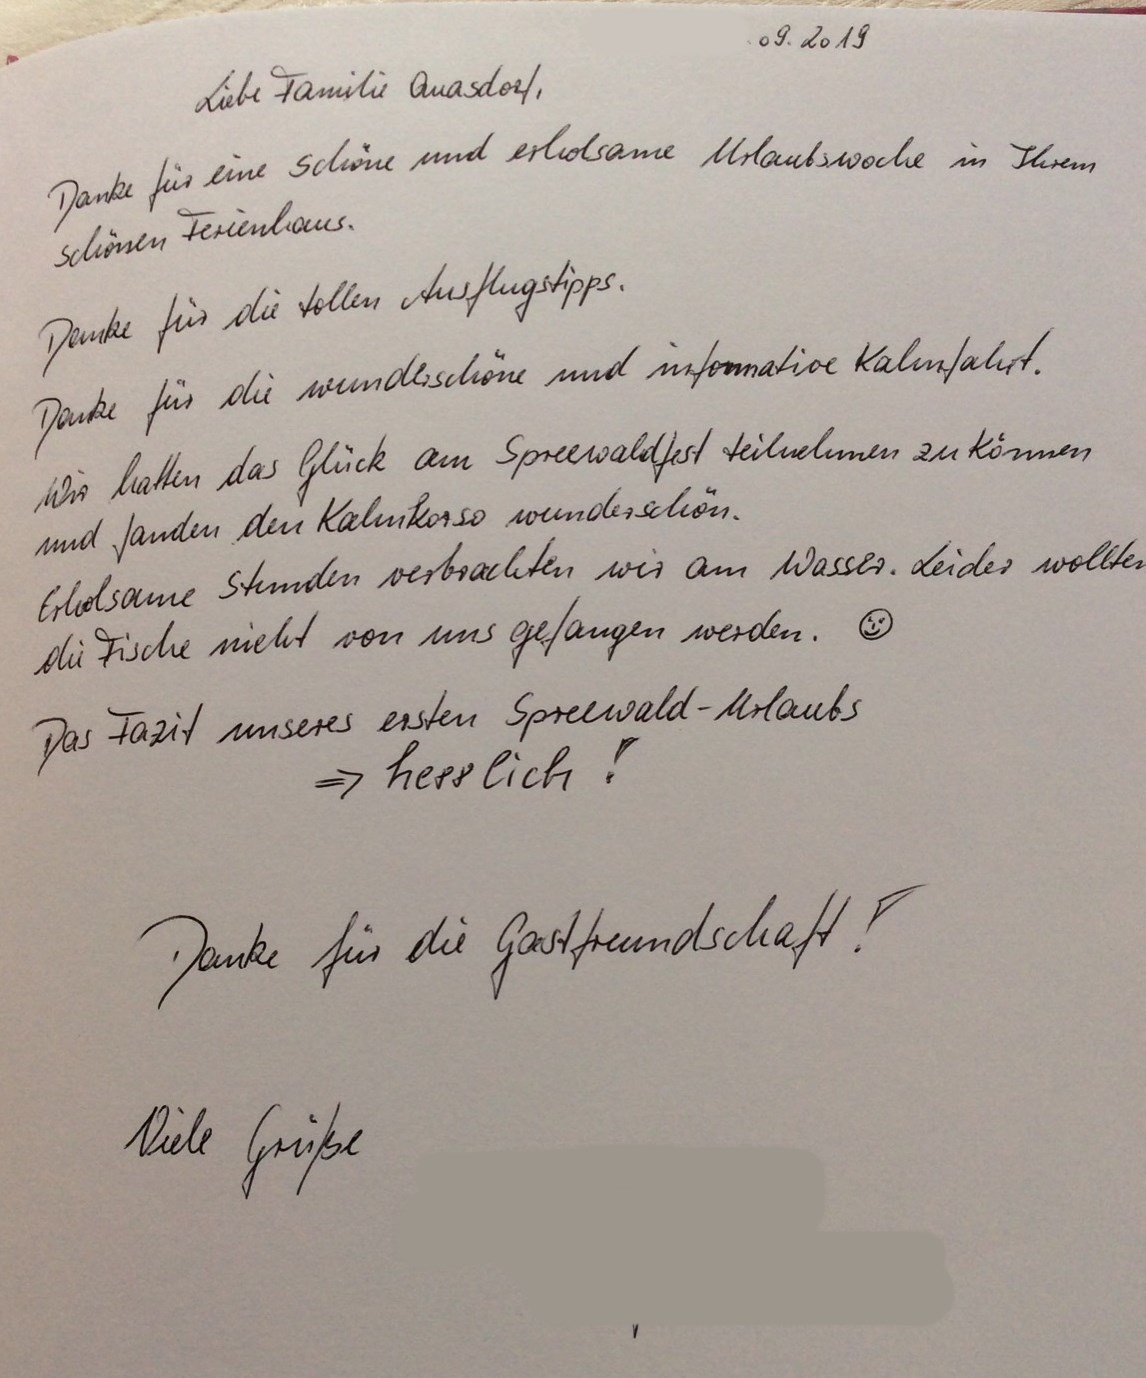 .09.2019
Liebe Familie Quasdorf,
Danke für eine schöne und erholsame Urlaubswoche in Ihrem
schönen Ferienhaus.
Danke für die tollen Ausflugstipps.
Danke für die wunderschöne und informative Kahnfahrt.
Wir hatten das Glück am Spreewaldfest teilnehmen zu können
und fanden den Kahnkorso wunderschön.
Erholsame Stunden verbrachten wir am Wasser. Leider wollten
die Fische nicht von uns gefangen werden. ☺
Das Fazit unseres ersten Spreewald-Urlaubs
⇒ herrlich!
Danke für die Gastfreundschaft!
Viele Grüße